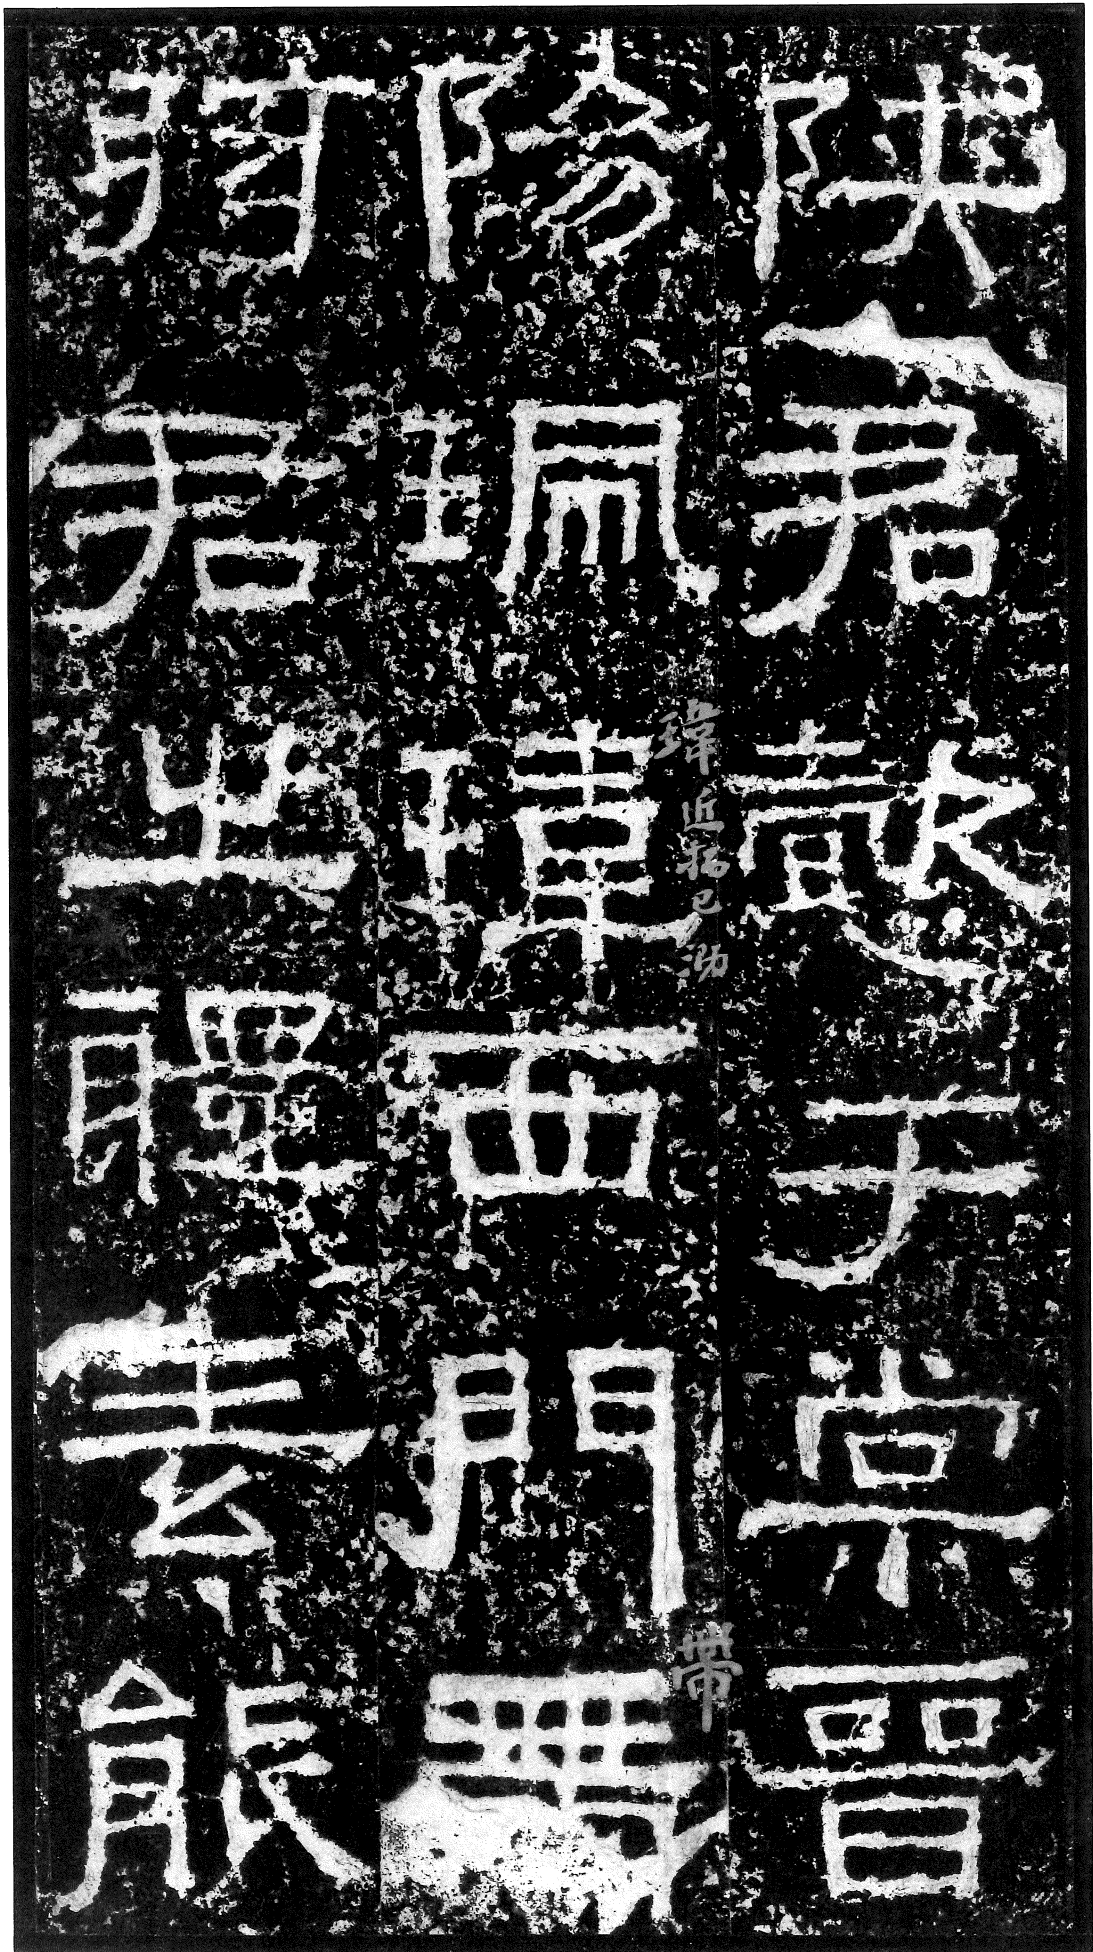 陝君懿于棠晉
陽珮瑋西門帶
瑋近拓已泐
帶
弦君之體素能